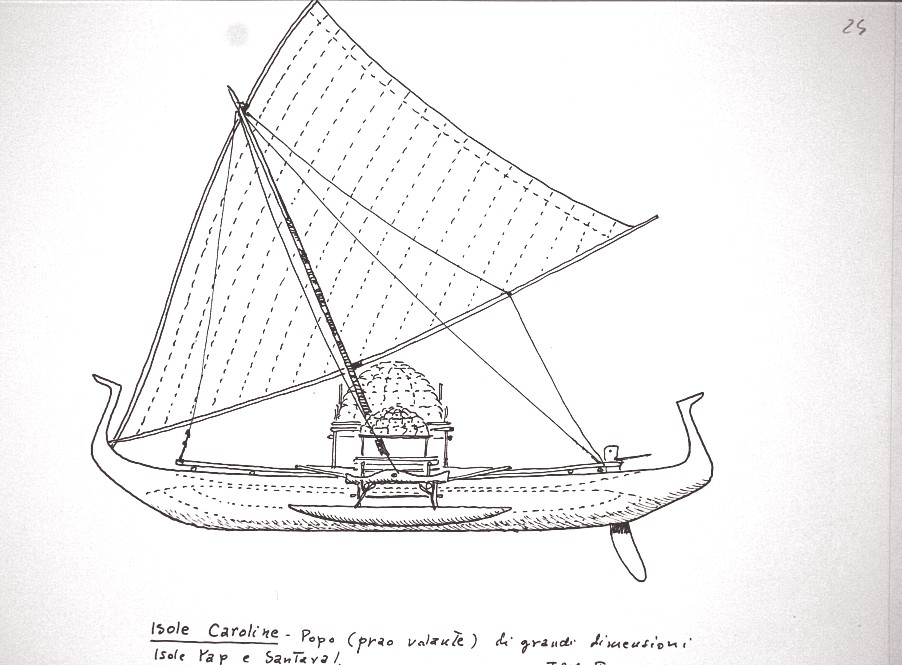 25
Isole Caroline - Popo (prao volante) di grandi dimensioni
Isole Yap e Santaval.